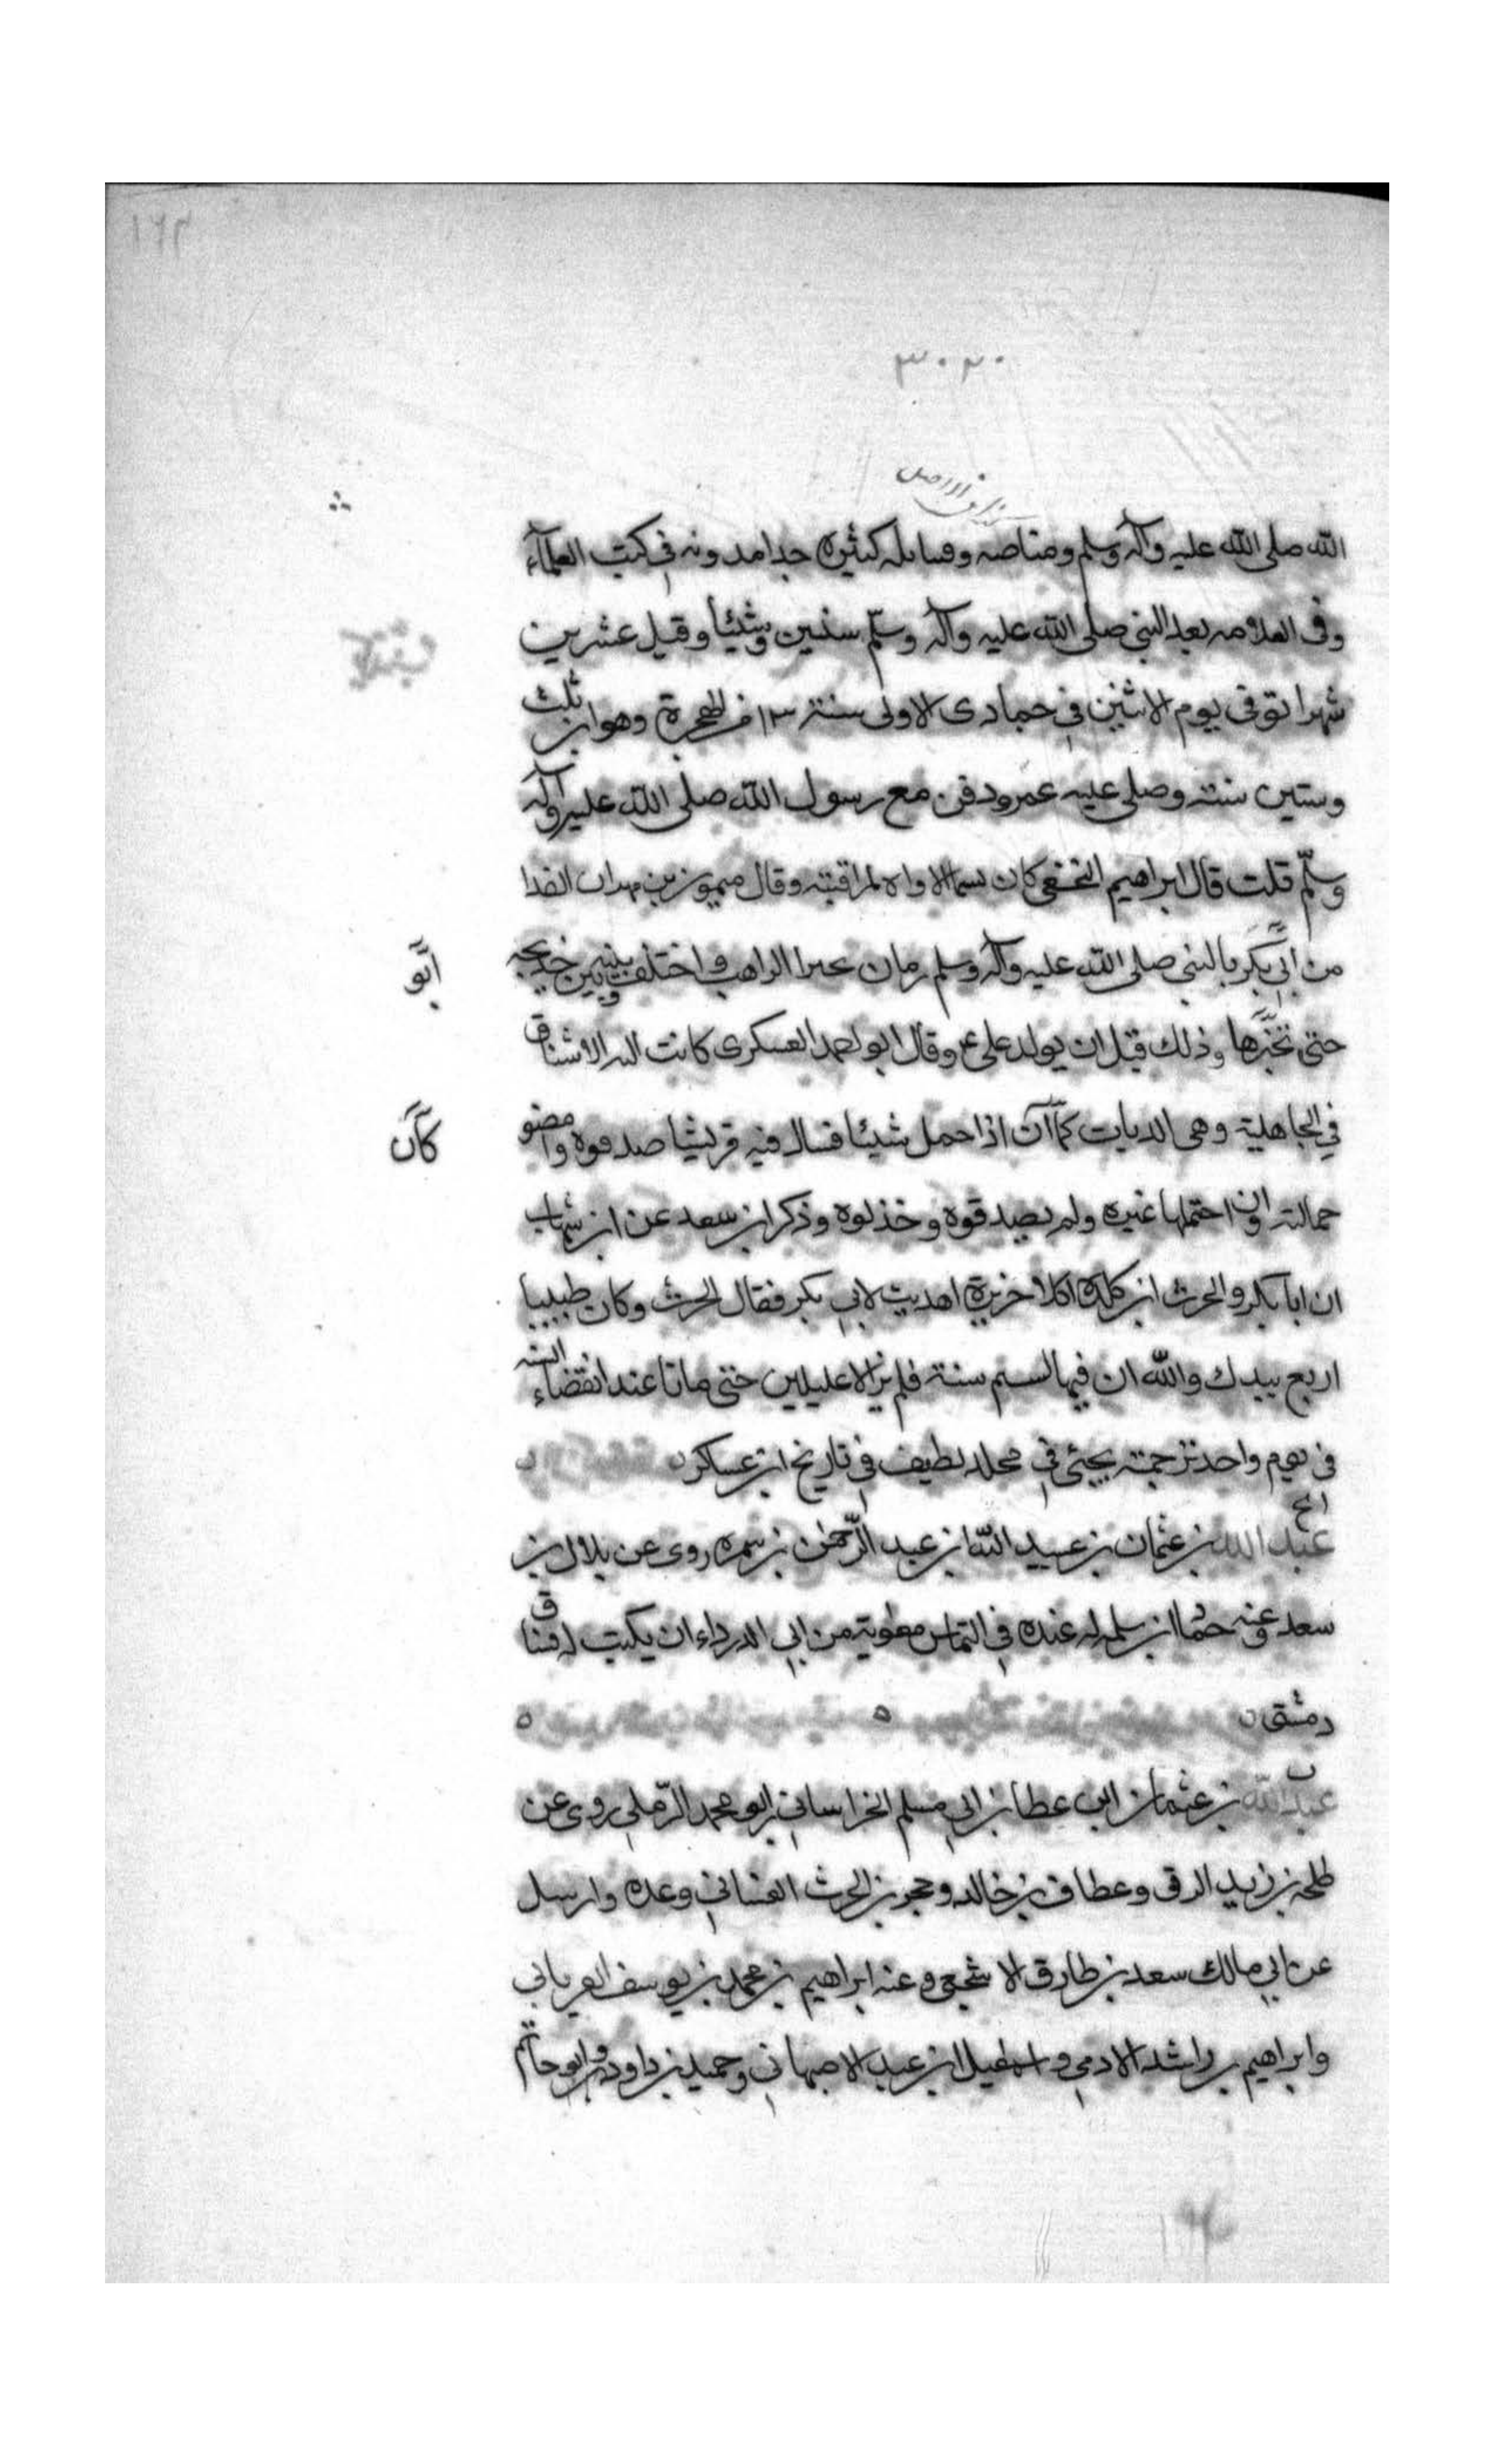 ١٦٢
٣٠٢٠
الله صلى الله عليه وآله وسلم ومناصه وفسائله كثيره جدا مدونه في كتب العلمآء
وفى العلامه بعد النبي صلى الله عليه وآله وسلّم سنين وشيئا وقيل عشرين
شهرا توفى يوم الاثنين في جمادى الاولى سنة ١٣ من الهجرة وهو ابن ثلث
وستين سنة وصلى عليه عمر ودفن مع رسول الله صلى الله عليه وآله
وسلّم قلت قال ابراهيم النخعي كان يسما الاواه لمراقبته وقال ميمون بن مهران لقدا
من ابي بكر بالنبي صلى الله عليه وآله وسلم زمان بحيرا الراهب واختلف بينه وبين خديجه
أبو
حتى تخبرها وذلك قبل ان يولد على ع وقال ابو احمد العسكرى كانت اليه الاشناق
في الجاهلية وهى الديات كمآ ان اذا حمل شيئا فسال فيه قريشا صدقوه وامضو
كآن
حمالته وان احتملها غيره ولم يصدقوه وخذلوه وذكر ابن سعد عن ابن شهاب
ان ابا بكر والحرث ابن كلدة اكلا خزيرة اهديت لابي بكر فقال الحرث وكان طبيبا
اربع بيدك والله ان فيها لسم سنة فلم يزالا عليلين حتى ماتا عند انقضاء السنه
فى يوم واحد ترجمته يجئى في مجلد لطيف في تاريخ ابن عساكر
عبد الله بن عثمان بن عبيد الله ابن عبد الرّحمن بن سمره روى عن بلال بن
سعد وعنه حماد ابن سلمه له عنده في التماس معوية من ابي الدرداء ان يكتب له فساق
دمشق
عبد الله بن عثمان ابن عطا بن ابي مسلم الخراساني ابو محمد الرّملي روى عن
طلحه بن زيد الرقى وعطاف بن خالد وحجر بن الحرث الغساني وعده وارسل
عن ابي مالك سعد بن طارق الاشجعي وعنه ابراهيم بن محمد بن يوسف الفريابي
وابراهيم بن راشد الادمي واسمعيل ابن عبد الاصبهاني وحميد بن داود وابو حاتم